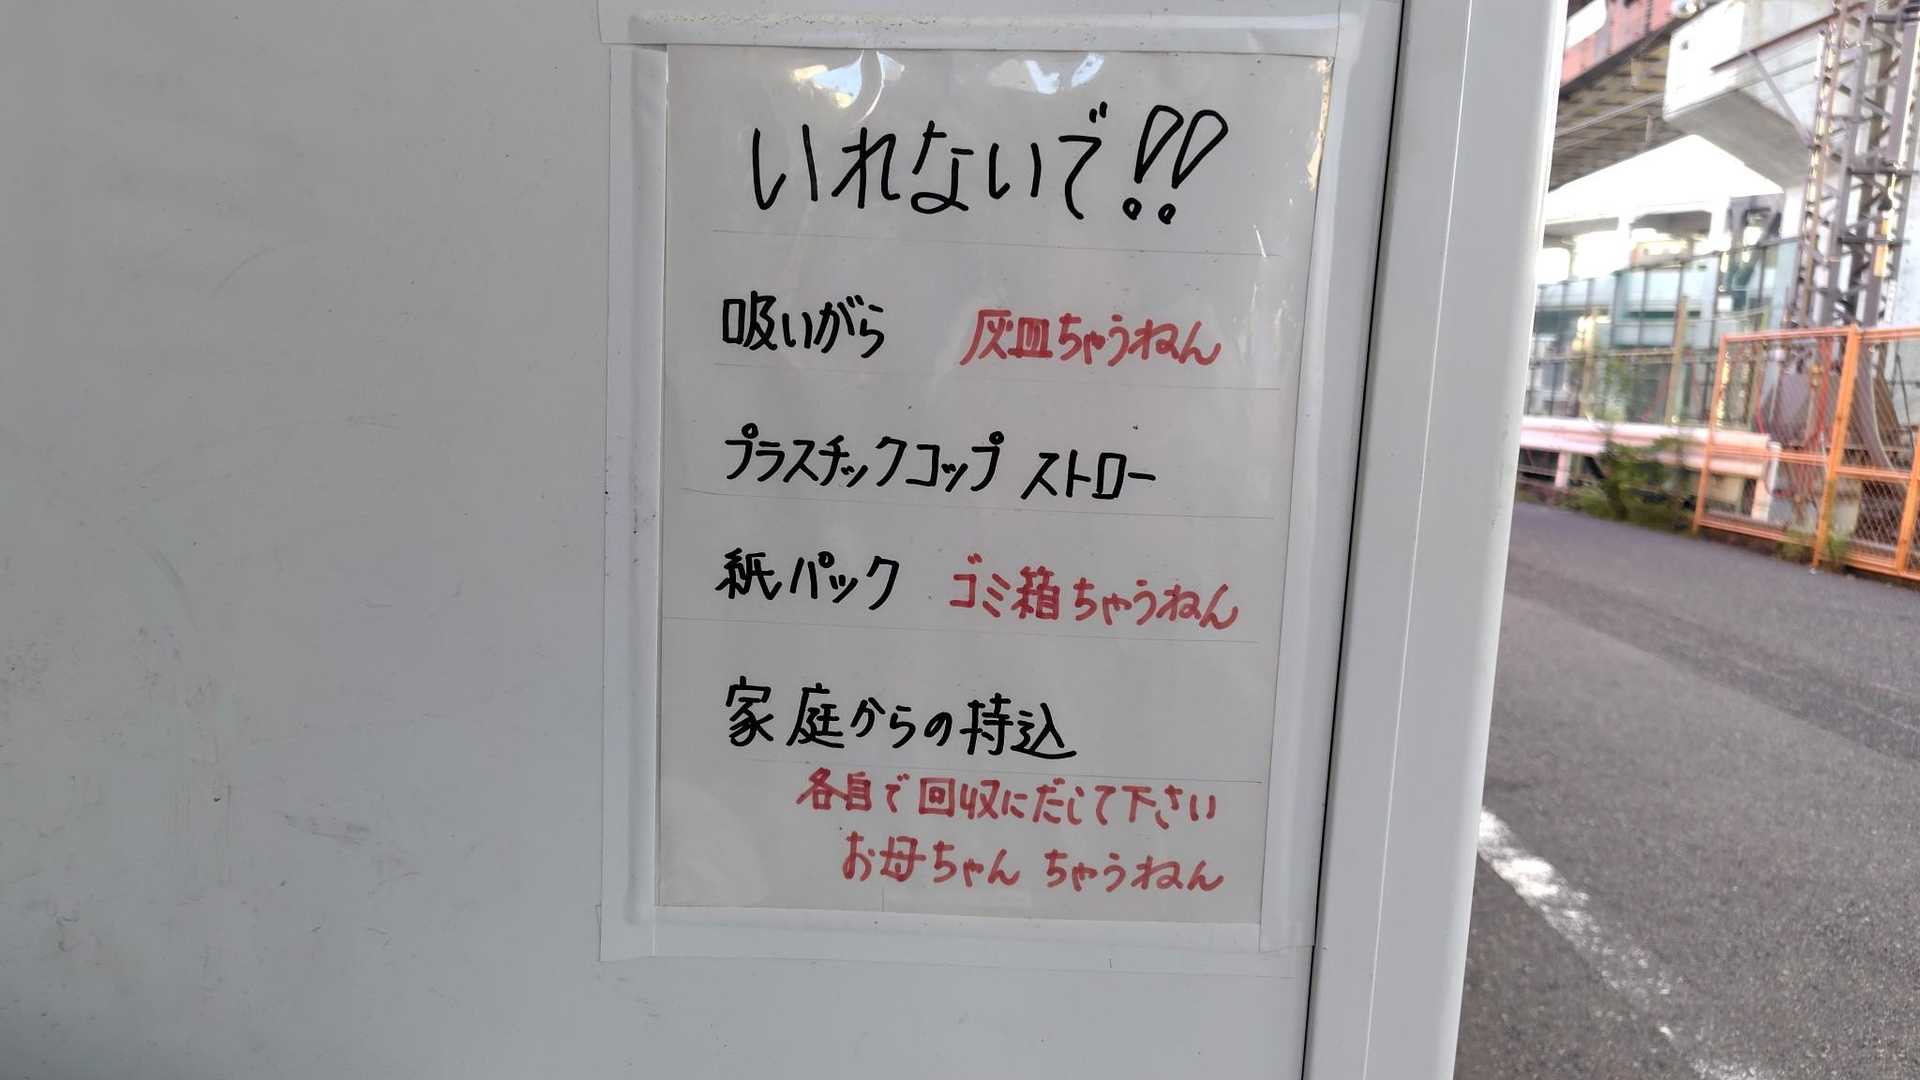 いれないで!!
吸いがら 灰皿ちゃうねん
プラスチックコップ ストロー
紙パック ゴミ箱ちゃうねん
家庭からの持込
各自で回収にだして下さい
お母ちゃん ちゃうねん